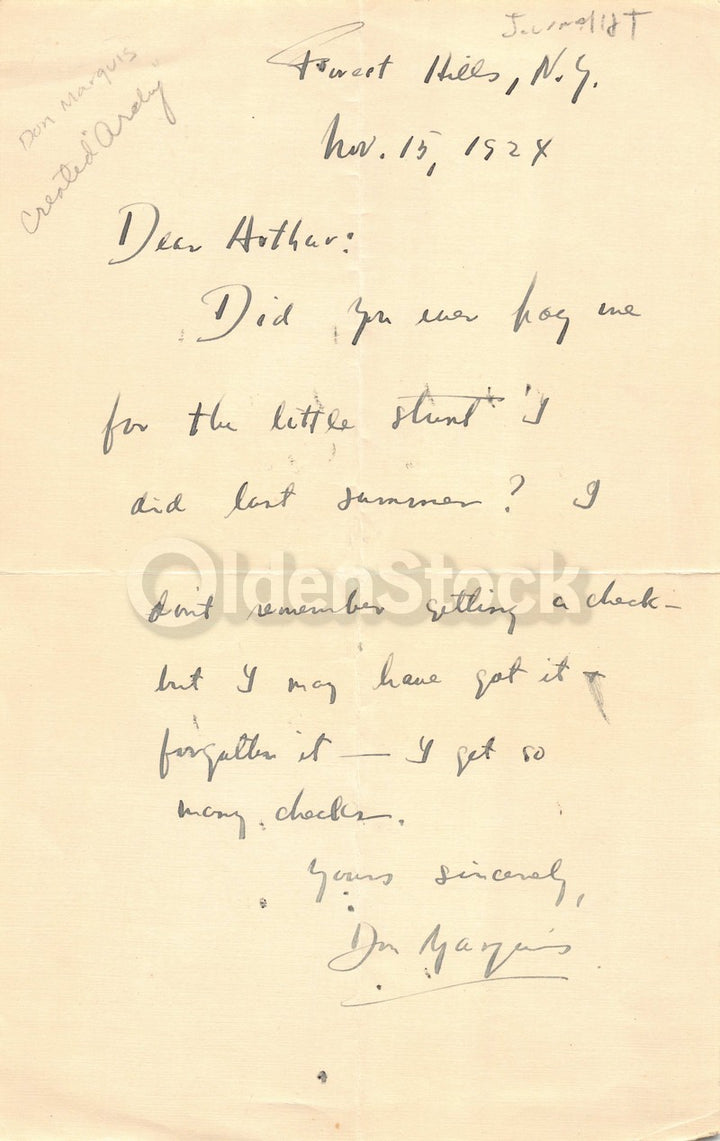 Journalist
Don Marquis
Created "Archy"
Forest Hills, N.Y.
Nov. 15, 1924
Dear Arthur:
Did you ever pay me
for the little stunt I
did last summer? I
don't remember getting a check —
but I may have got it +
forgotten it — I get so
many checks.
Yours sincerely,
Don Marquis
OldenStock